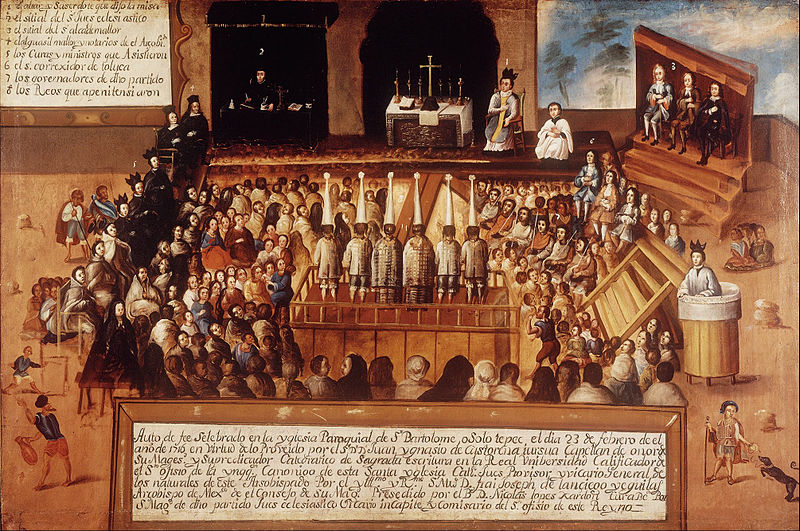 1 El altar y Saserdote que dijo la misa
2 el sitial del S.r Jues eclesiastico
3 el sitial del s.r alcaldemallor
4 el alguasil mallor y notarios de el Arçobi.do
5 los Curas y ministros que Asistieron
6 el s. correxidor de toluca
7 los governadores de dho partido
8 los Reos que apenitensiaron
2
3
5
6
Auto de fee Selebrado en la yglesia Paroquial de S.n Bartolome, osolotepec. el dia 23 de febrero de el
año de 1716 en Virtud de lo Proveido por el S.r D.r Juan ygnasio de Castorena iursua Capellan de onor de
Su Mages.d y Su Predicador Catedratico de Sagrada Escritura en la Real Vnibersidad Calificador de
el S.to ofisio de la ynqq.n Canonigo de esta Santa yglesia Cat.l Jues Provisor y vicario General de
los naturales de Este Arsobispado Por el yll.mo y R.mo S.r M.o D. frai Joseph de lanciego y eguilas
Arcobispo de Mex.co de el Consejo de Su Mag.d Presedido por el B.r D. Nicolas lopes Xardon Cura Be Por
S. Mag.d de dho partido Jues eclesiastico in capite y Comisario del S. ofisio de este Reyno